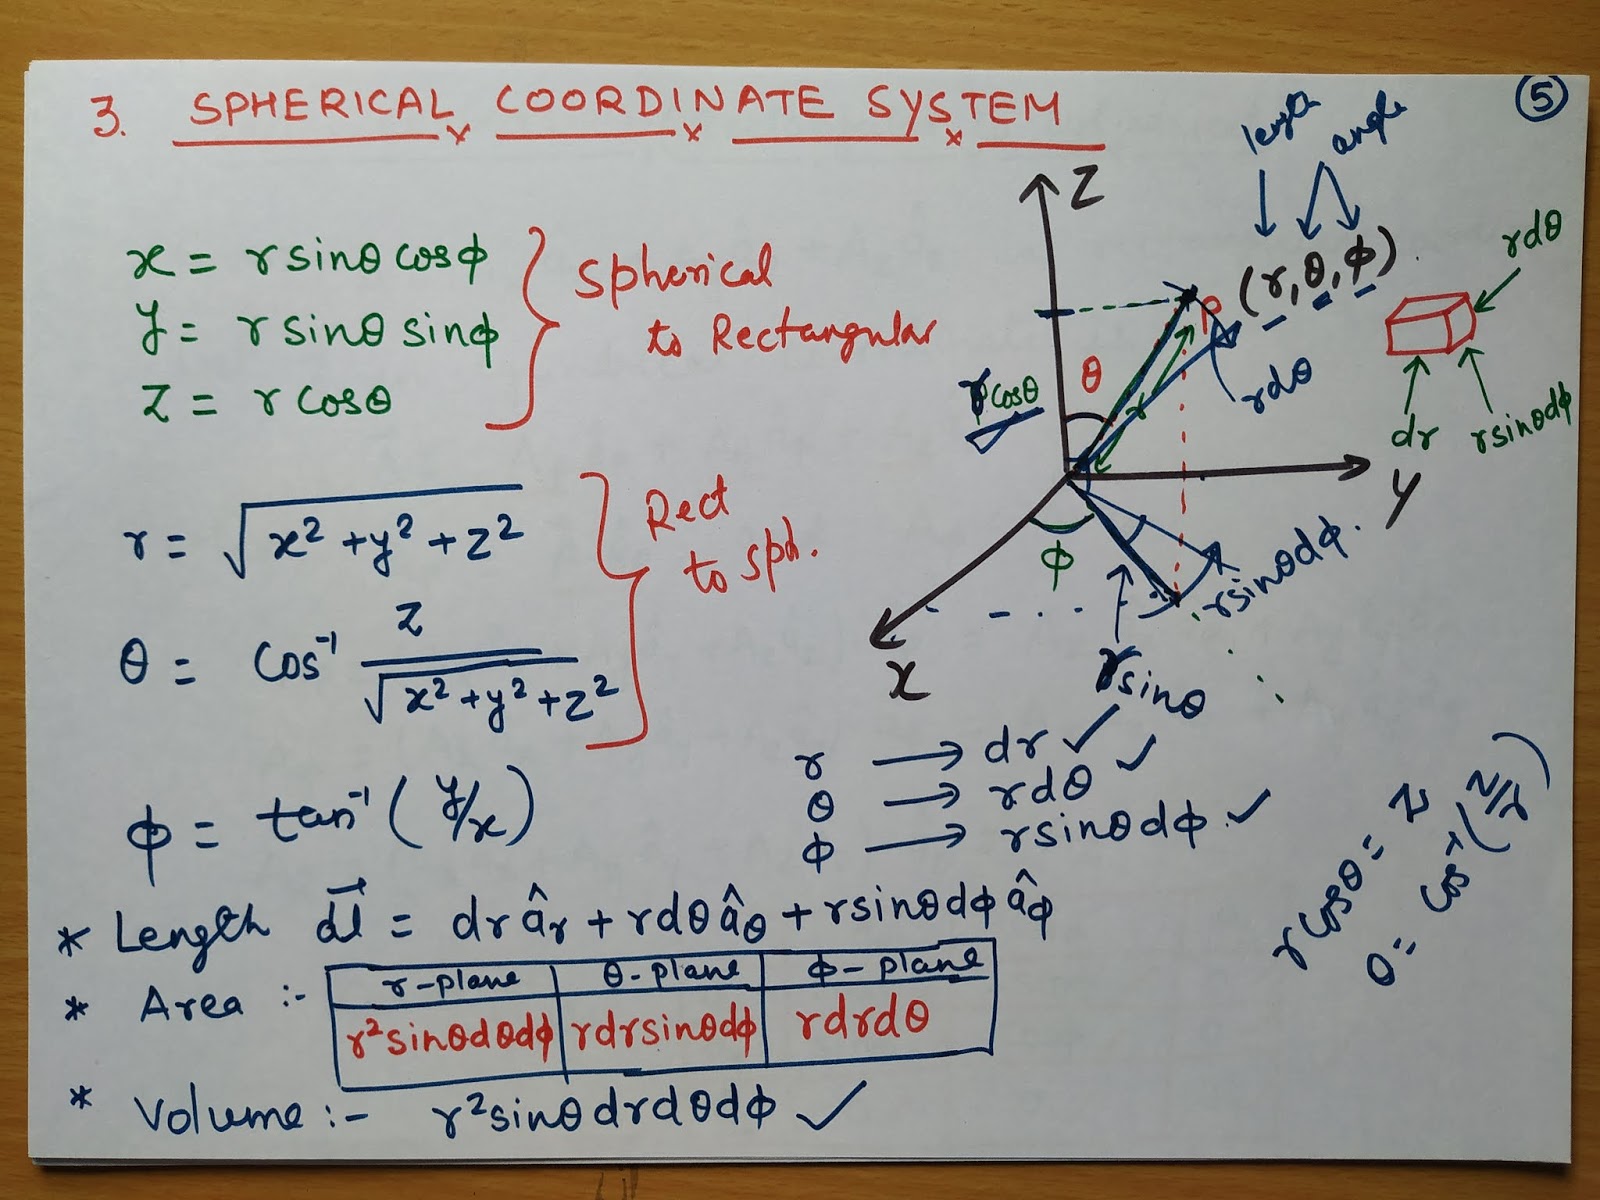 3. SPHERICAL COORDINATE SYSTEM
5
x = r sinθ cosϕ
y = r sinθ sinϕ
z = r cosθ
Spherical
to Rectangular
r = √x² + y² + z²
θ = cos⁻¹ z / √x² + y² + z²
Rect
to sph.
ϕ = tan⁻¹ (y/x)
length
angle
(r, θ, ϕ)
Z
P
θ
r
r cosθ
rdθ
Y
ϕ
X
rsinθdϕ.
rsinθ
rdθ
dr
rsinθdϕ
r → dr ✓
θ → rdθ ✓
ϕ → rsinθdϕ. ✓
r cosθ = z
θ = cos⁻¹(z/r)
* Length d⃗l = dr âr + rdθ âθ + rsinθdϕ âϕ
* Area :-
r-plane θ-plane ϕ-plane
r²sinθdθdϕ rdrsinθdϕ rdrdθ
* Volume :- r²sinθdrdθdϕ ✓